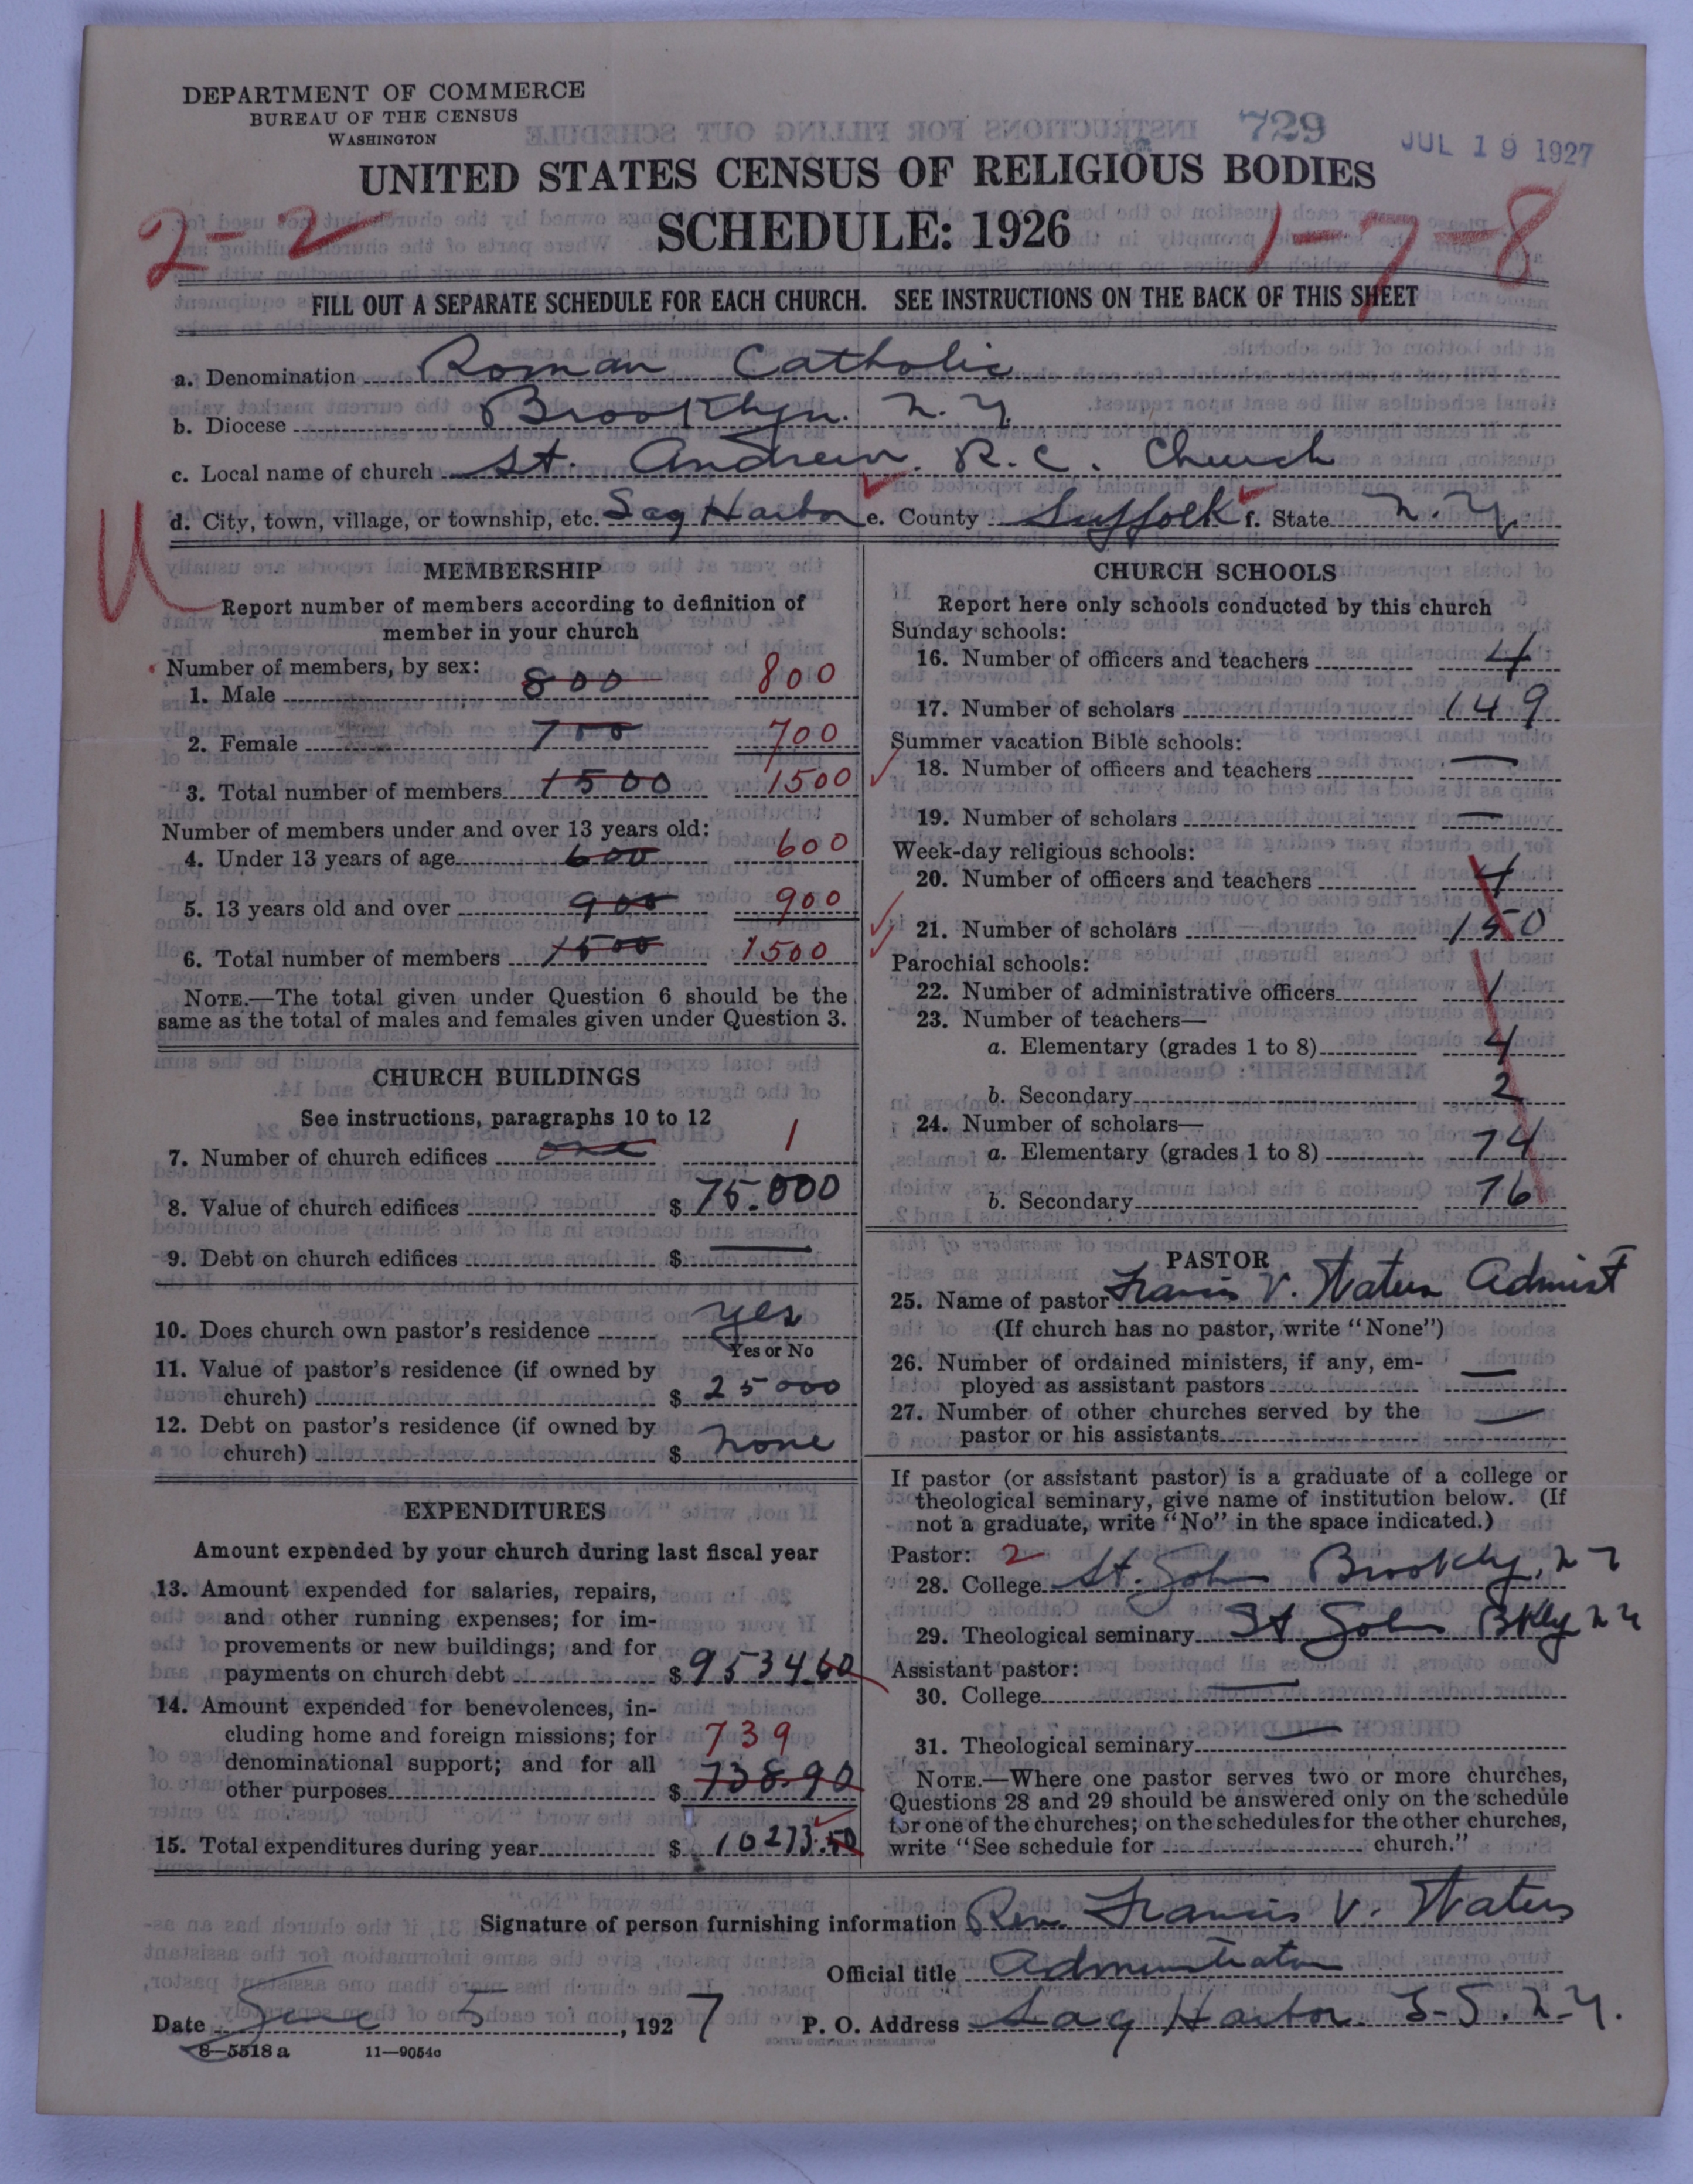 DEPARTMENT OF COMMERCE
BUREAU OF THE CENSUS
WASHINGTON
729
JUL 19 1927
UNITED STATES CENSUS OF RELIGIOUS BODIES
SCHEDULE: 1926
2-2
1-7-8
FILL OUT A SEPARATE SCHEDULE FOR EACH CHURCH. SEE INSTRUCTIONS ON THE BACK OF THIS SHEET
a. Denomination Roman Catholic
b. Diocese Brooklyn. N.Y.
c. Local name of church St. Andrew. R.C. Church
d. City, town, village, or township, etc. Sag Harbor e. County Suffolk f. State N.Y.
MEMBERSHIP
Report number of members according to definition of
member in your church
Number of members, by sex:
1. Male 800 800
2. Female 700 700
3. Total number of members 1500 1500
Number of members under and over 13 years old:
4. Under 13 years of age 600 600
5. 13 years old and over 900 900
6. Total number of members 1500 1500
NOTE.—The total given under Question 6 should be the
same as the total of males and females given under Question 3.
CHURCH BUILDINGS
See instructions, paragraphs 10 to 12
7. Number of church edifices one 1
8. Value of church edifices $ 75.000
9. Debt on church edifices $ —
10. Does church own pastor's residence yes
Yes or No
11. Value of pastor's residence (if owned by
church) $ 25000
12. Debt on pastor's residence (if owned by
church) $ none
EXPENDITURES
Amount expended by your church during last fiscal year
13. Amount expended for salaries, repairs,
and other running expenses; for im-
provements or new buildings; and for
payments on church debt $ 9534.60
14. Amount expended for benevolences, in-
cluding home and foreign missions; for 739
denominational support; and for all
other purposes $ 738.90
15. Total expenditures during year $ 10273.50
CHURCH SCHOOLS
Report here only schools conducted by this church
Sunday schools:
16. Number of officers and teachers 4
17. Number of scholars 149
Summer vacation Bible schools:
18. Number of officers and teachers —
19. Number of scholars —
Week-day religious schools:
20. Number of officers and teachers 4
21. Number of scholars 150
Parochial schools:
22. Number of administrative officers 1
23. Number of teachers—
a. Elementary (grades 1 to 8) 4
b. Secondary 2
24. Number of scholars—
a. Elementary (grades 1 to 8) 74
b. Secondary 76
PASTOR
25. Name of pastor Francis V. Waters Admist
(If church has no pastor, write "None")
26. Number of ordained ministers, if any, em-
ployed as assistant pastors —
27. Number of other churches served by the
pastor or his assistants —
If pastor (or assistant pastor) is a graduate of a college or
theological seminary, give name of institution below. (If
not a graduate, write "No" in the space indicated.)
Pastor: 2
28. College St. John Brookly, N Y
29. Theological seminary St John Bkly N Y
Assistant pastor:
30. College —
31. Theological seminary —
NOTE.—Where one pastor serves two or more churches,
Questions 28 and 29 should be answered only on the schedule
for one of the churches; on the schedules for the other churches,
write "See schedule for church."
Signature of person furnishing information Rev. Francis V. Waters
Official title Administrator
Date June 5, 1927 P. O. Address Sag Harbor N.Y.
8—5518 a 11—9054c